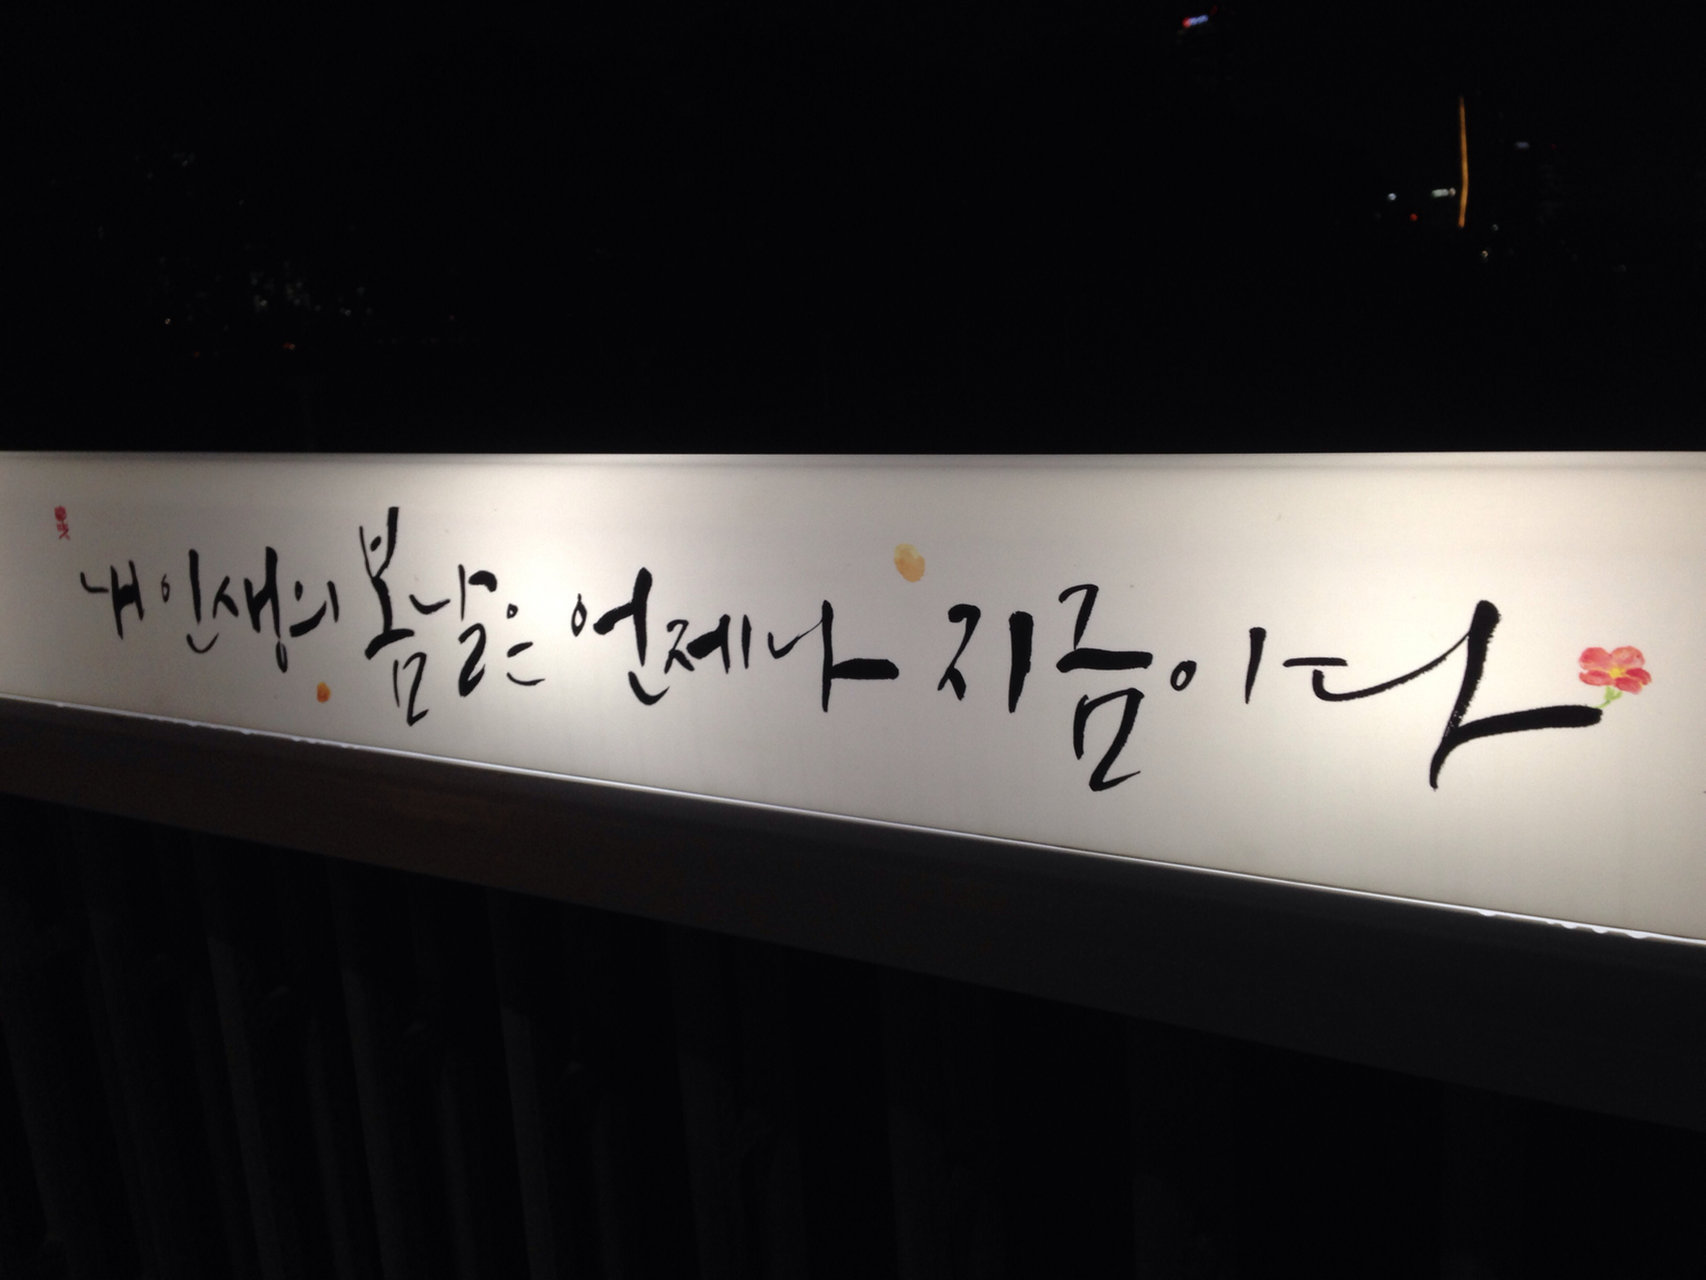 내 인생의 봄날은 언제나 지금이다